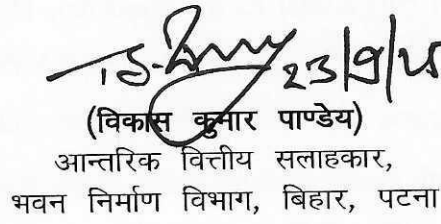 23/9/25
(विकास कुमार पाण्डेय)
आन्तरिक वित्तीय सलाहकार,
भवन निर्माण विभाग, बिहार, पटना